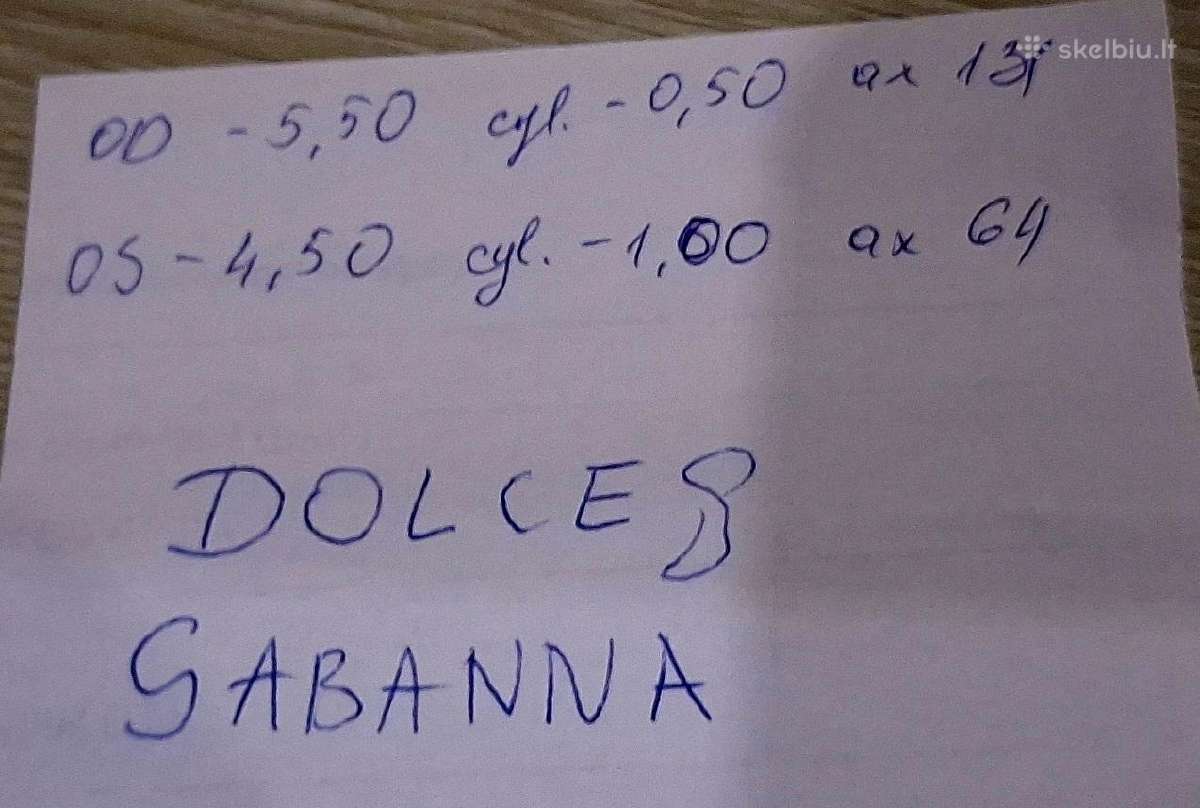 skelbiu.lt
OD -5,50 cyl. -0,50 ax
OS -4,50 cyl. -1,00 ax 64
DOLCE &
GABANNA